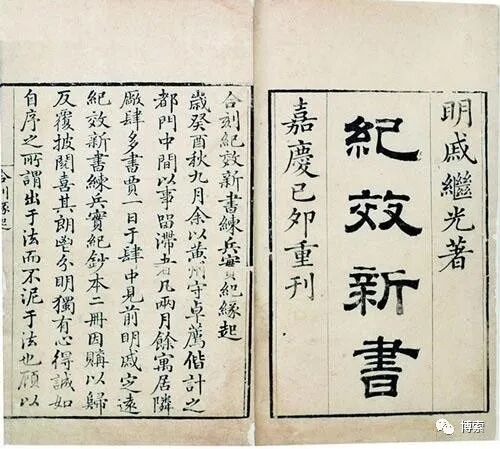 明戚繼光著
紀效新書
嘉慶己卯重刊
合刻紀效新書練兵實紀緣起
歲癸酉秋九月余以黃州守卓薦偕計之
都門中間以事留滯者凡兩月餘寓居隣
廠肆多書賈一日于肆中見前明戚定遠
紀效新書練兵實紀鈔本二冊因購以歸
反覆披閱喜其朗鬯分明獨有心得誠如
自序之所謂出于法而不泥于法也顧以
合刊緣起
博索